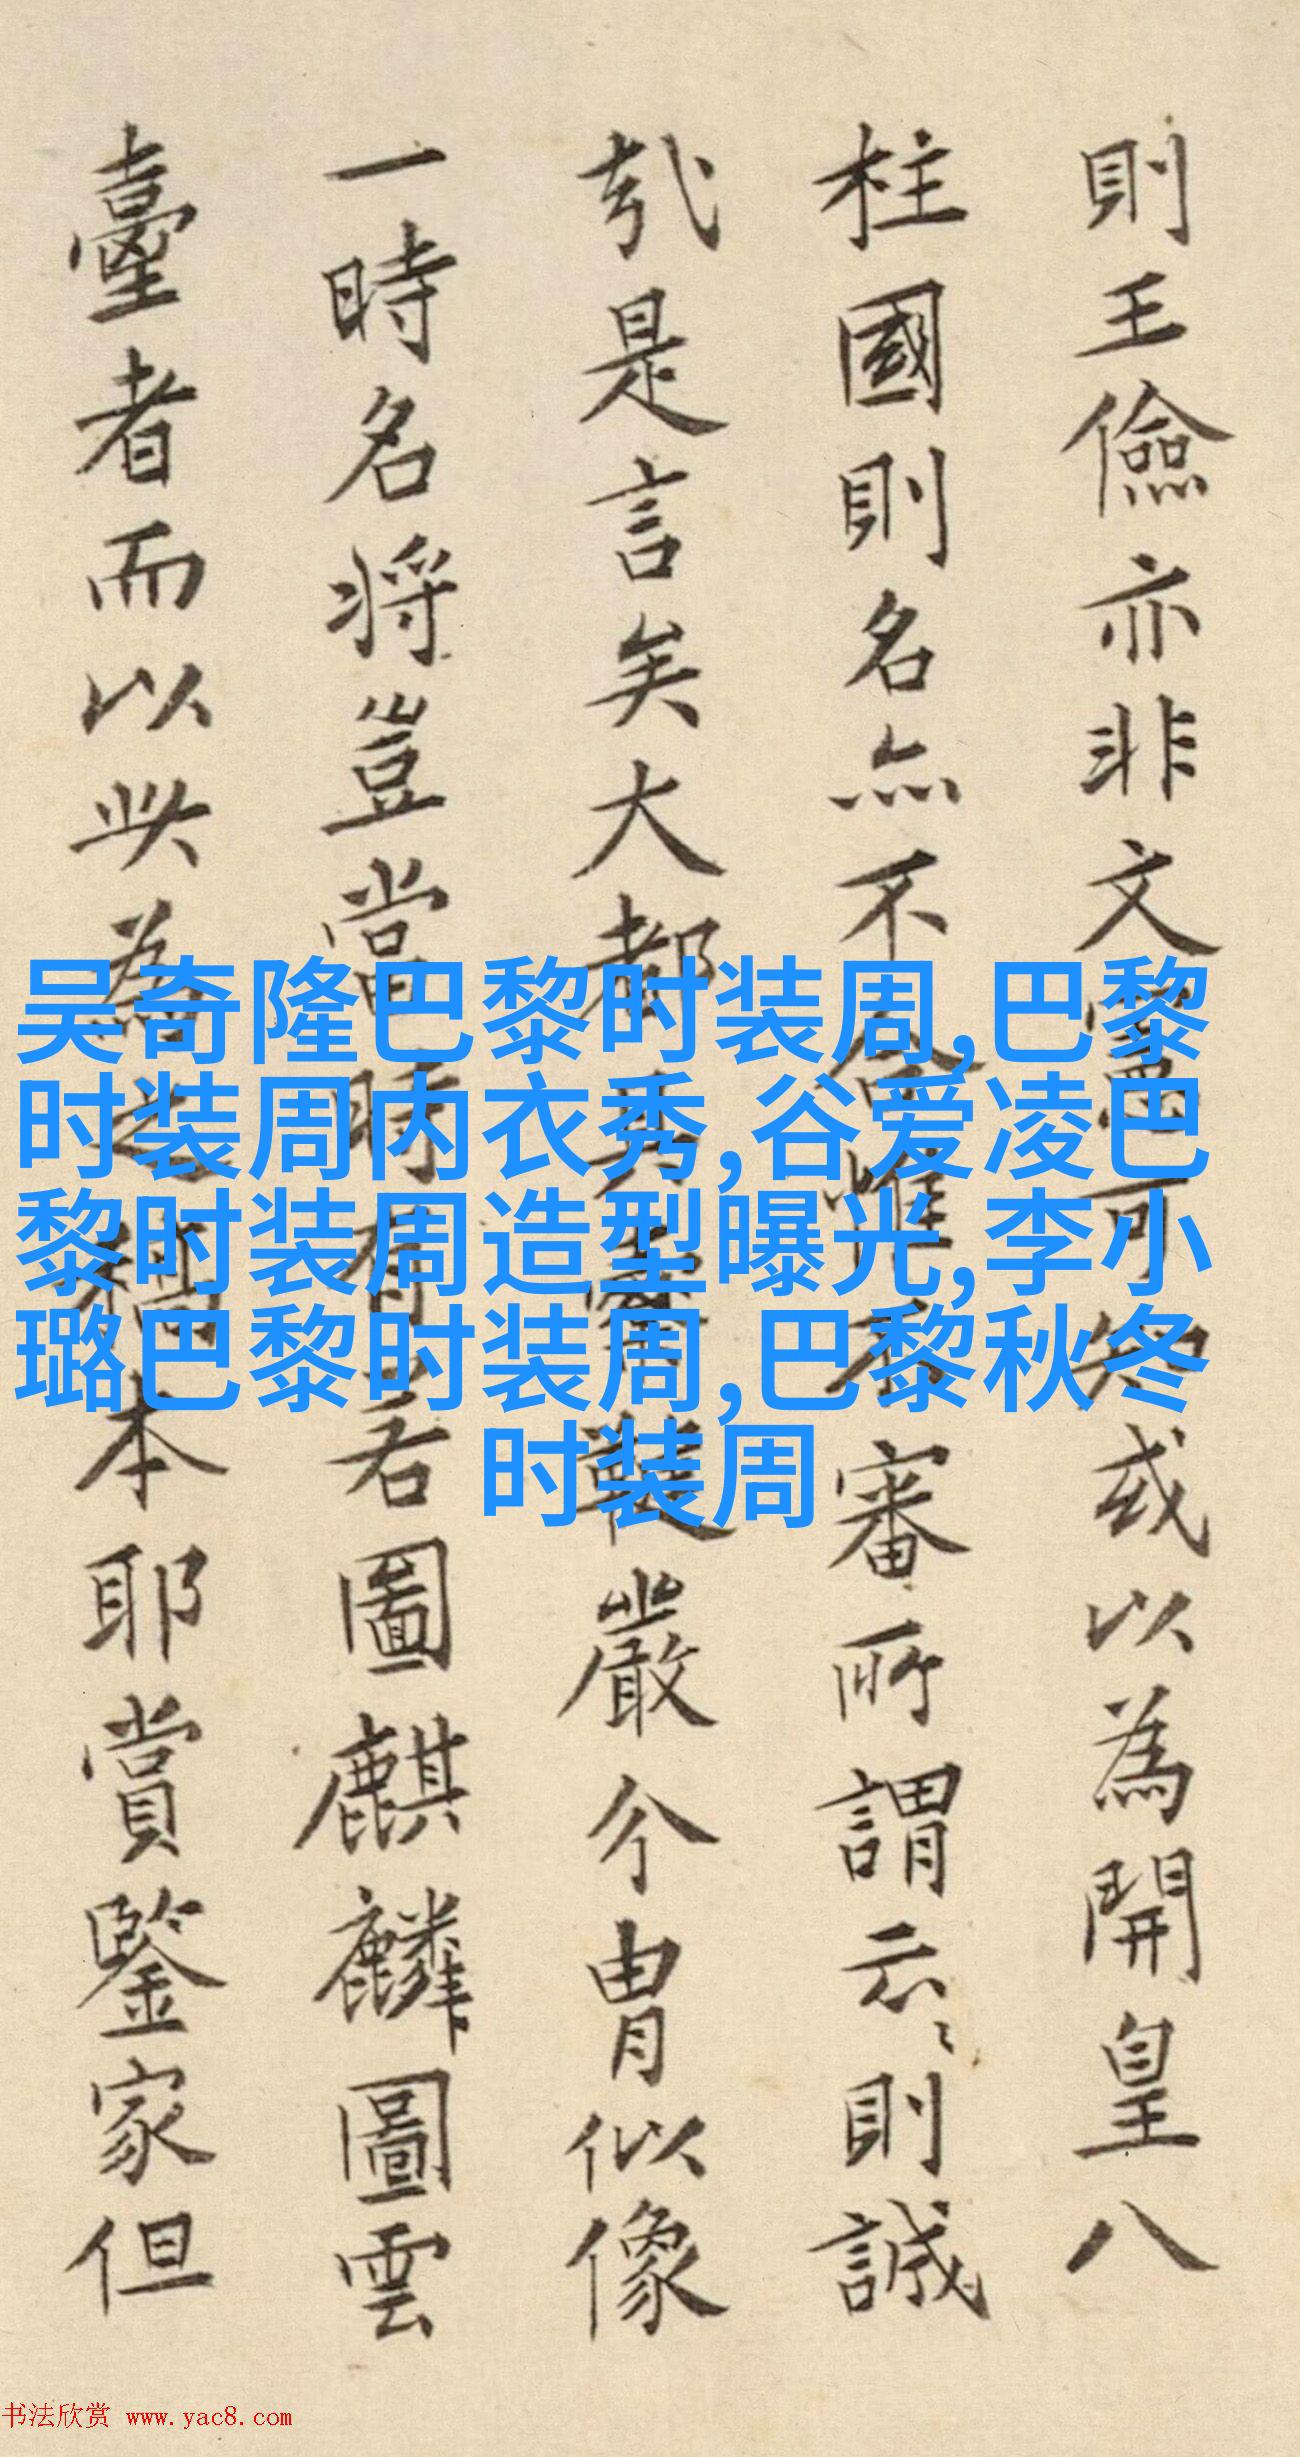 則王儉亦非文憲可知或以為開皇八
柱國則名亦不合惟審所謂云〻則誠
㢤是言矣大都嚴今冑似像
一時名将豈當時君圖麒麟圖雲
臺者而以此為之稿本耶賞鑒家但
吴奇隆巴黎时装周,巴黎
时装周内衣秀,谷爱凌巴
黎时装周造型曝光,李小
璐巴黎时装周,巴黎秋冬
时装周
书法欣赏 www.yac8.com